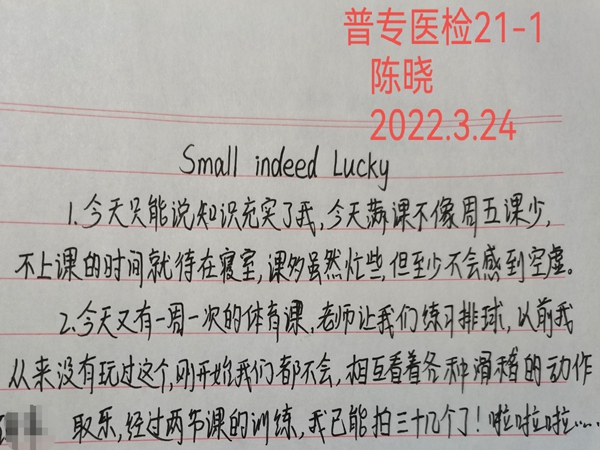 普专医检21-1
陈晓
2022.3.24
Small indeed Lucky
1.今天只能说知识充实了我,今天满课不像周五课少,
不上课的时间就待在寝室,课多虽然忙些,但至少不会感到空虚。
2.今天又有一周一次的体育课,老师让我们练习排球,以前我
从来没有玩过这个,刚开始我们都不会,相互看着各种滑稽的动作
取乐,经过两节课的训练,我已能拍三十几个了!啦啦啦……